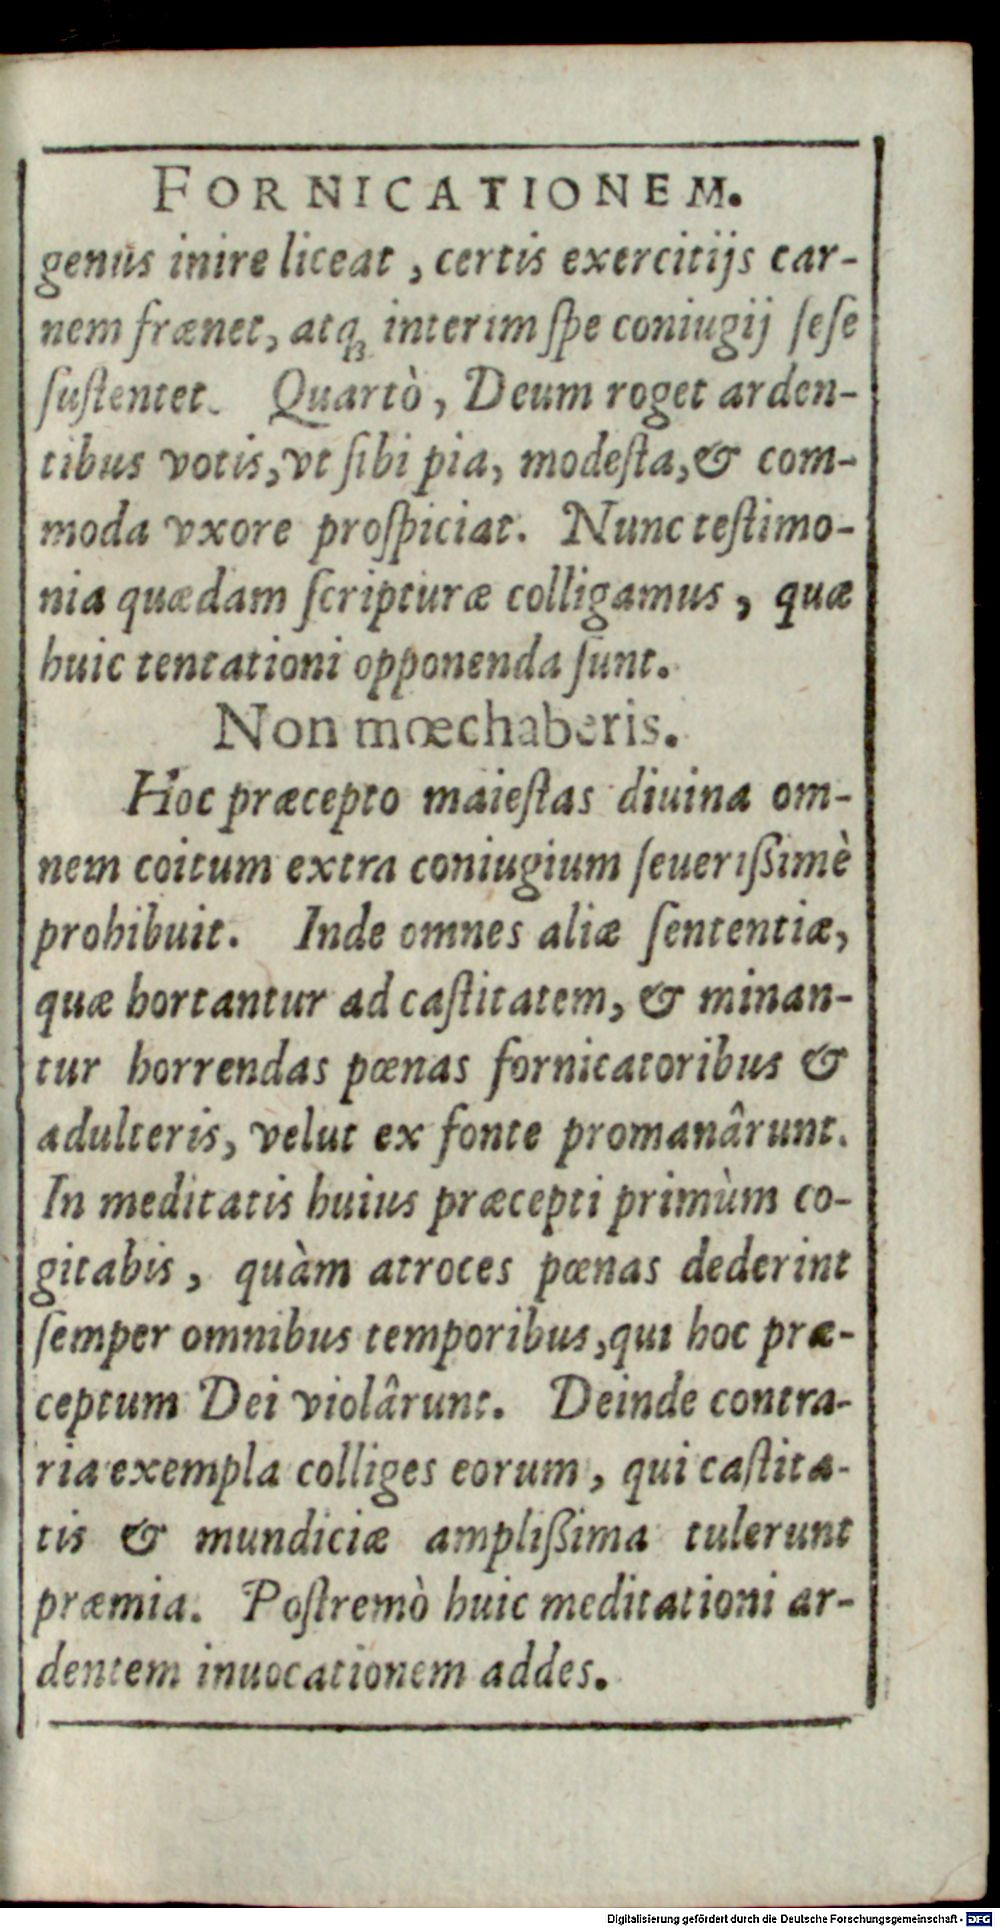 FORNICATIONEM.
genus inire liceat, certis exercitijs car-
nem frænet, atq; interim ſpe coniugij ſeſe
ſuſtentet. Quartò, Deum roget arden-
tibus votis, vt ſibi pia, modeſta, & com-
moda vxore proſpiciat. Nunc teſtimo-
nia quædam ſcripturæ colligamus, quæ
huic tentationi opponenda ſunt.
Non mœchaberis.
Hoc præcepto maieſtas diuina om-
nem coitum extra coniugium ſeueriſſimè
prohibuit. Inde omnes aliæ ſententiæ,
quæ hortantur ad caſtitatem, & minan-
tur horrendas pœnas fornicatoribus &
adulteris, velut ex fonte promanârunt.
In meditatis huius præcepti primùm co-
gitabis, quàm atroces pœnas dederint
ſemper omnibus temporibus, qui hoc præ-
ceptum Dei violârunt. Deinde contra-
ria exempla colliges eorum, qui caſtita-
tis & mundiciæ ampliſſima tulerunt
præmia. Poſtremò huic meditationi ar-
dentem inuocationem addes.
Digitalisierung gefördert durch die Deutsche Forschungsgemeinschaft - DFG